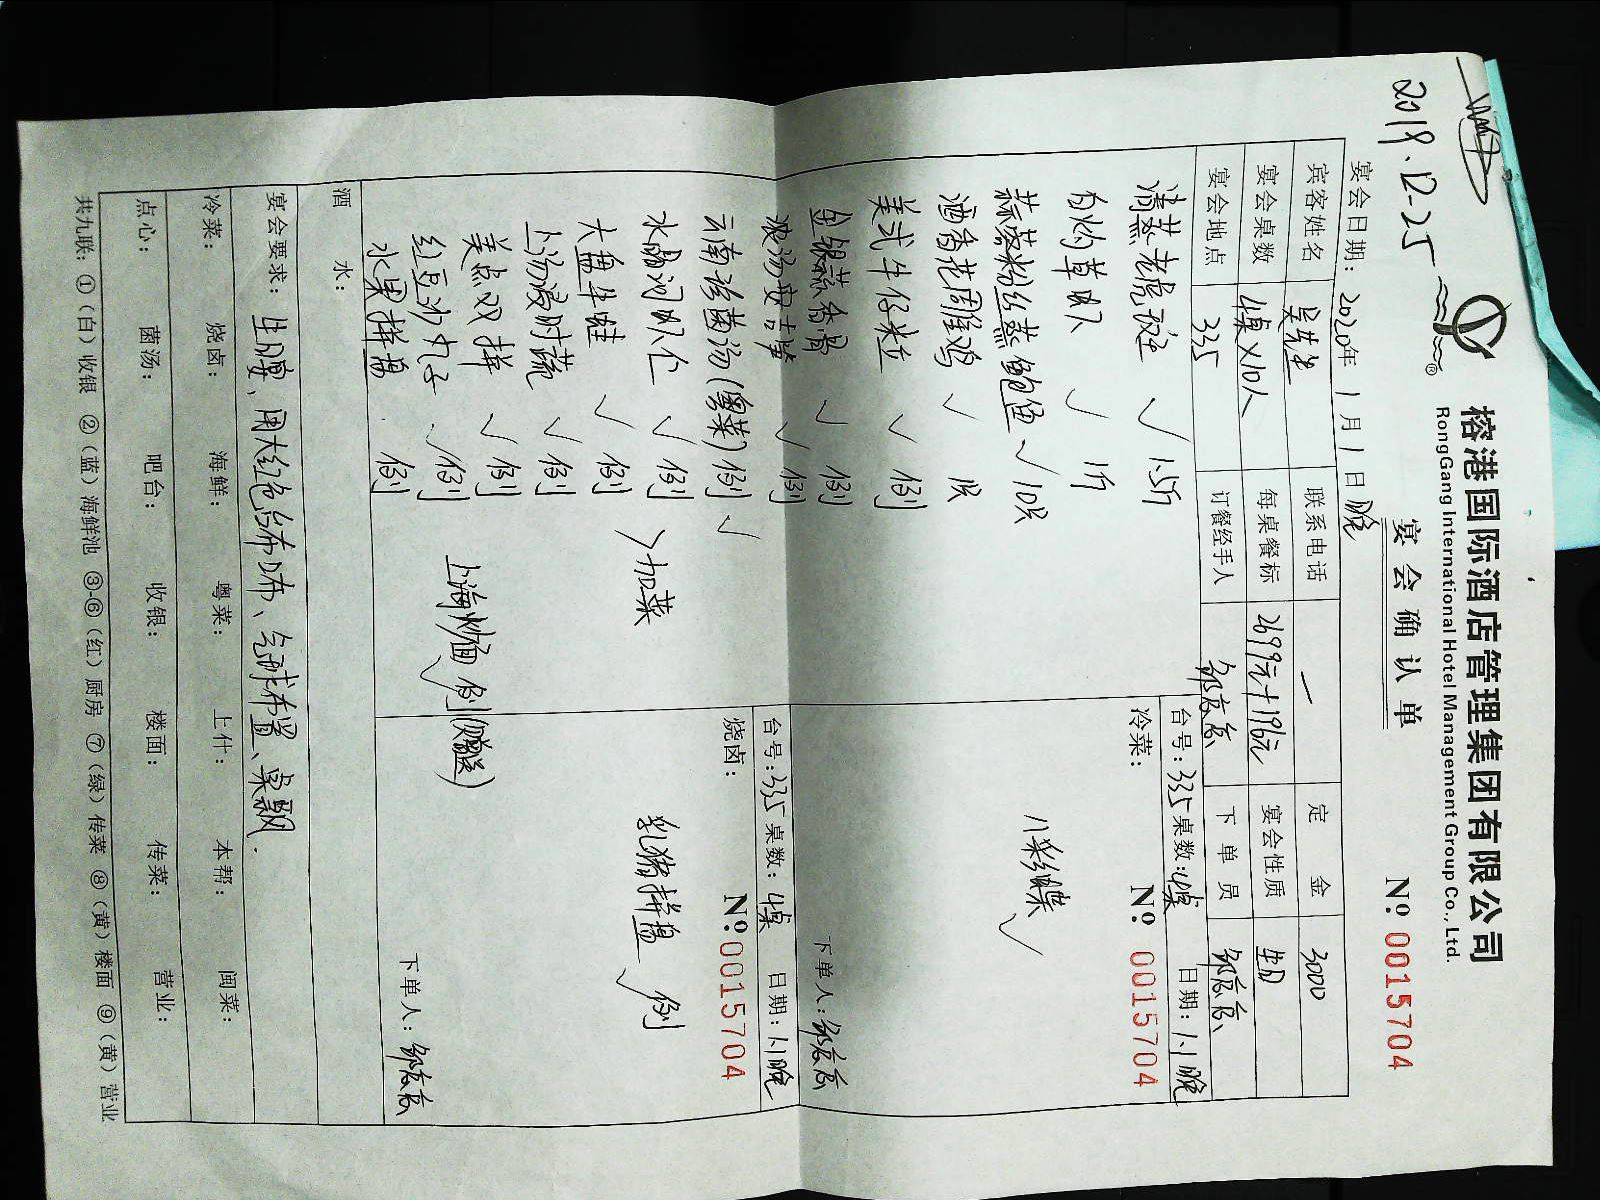 2019.12-25
榕港国际酒店管理集团有限公司
RongGang International Hotel Management Group Co., Ltd.
®
宴会确认单
Nº 0015704
宴会日期：2020年1月1日晚
宾客姓名 吴先生 联系电话 — 定金 3000
宴会桌数 4桌×10人 每桌餐标 2699元+196元 宴会性质 生日
宴会地点 335 订餐经手人 下单员
台号：335 桌数：4桌 日期：1.1晚
冷菜： Nº 0015704
八彩蝶 ✓
下单人：
台号：335 桌数：4桌 日期：1.1晚
烧卤： Nº 0015704
乳猪拼盘 ✓ 例
下单人：
清蒸老虎斑 ✓ 1.5斤
白灼草虾 ✓ 1斤
蒜蓉粉丝蒸鲍鱼 ✓ 10只
酒香花雕鸡 ✓ 1只
美式牛仔粒 ✓ 例
金银蒜香骨 ✓ 例
浓汤安吉笋 ✓ 例
云南珍菌汤(粤菜) 例 ✓
水晶河虾仁 ✓ 例
大盘牛蛙 ✓ 例
>加菜
上汤浸时蔬 ✓ 例
美点双拼 ✓ 例
红豆沙丸子 ✓ 例
水果拼盘 例
上海炒面 ✓ 例(赠送)
酒水：
宴会要求：生日宴、用大红色台布口布、气球布置、桌飘.
冷菜： 烧卤： 海鲜： 粤菜： 上什： 本帮： 闽菜：
点心： 菌汤： 吧台： 收银： 楼面： 传菜： 营业：
共九联：①（白）收银 ②（蓝）海鲜池 ③-⑥（红）厨房 ⑦（绿）传菜 ⑧（黄）楼面 ⑨（黄）营业